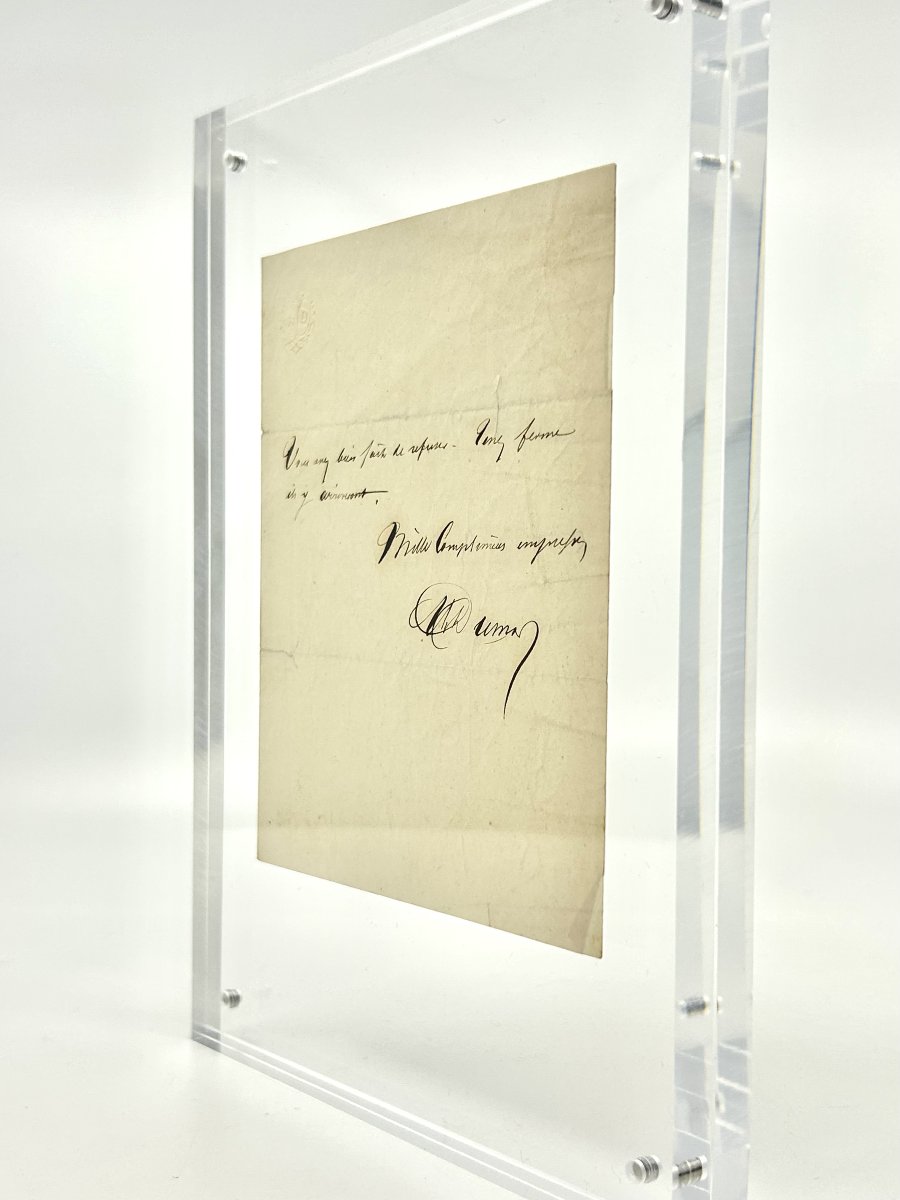 Vous avez bien fait de refuser - Tenez ferme
ils y viendront.
Mille Compliments empressés
A Dumas